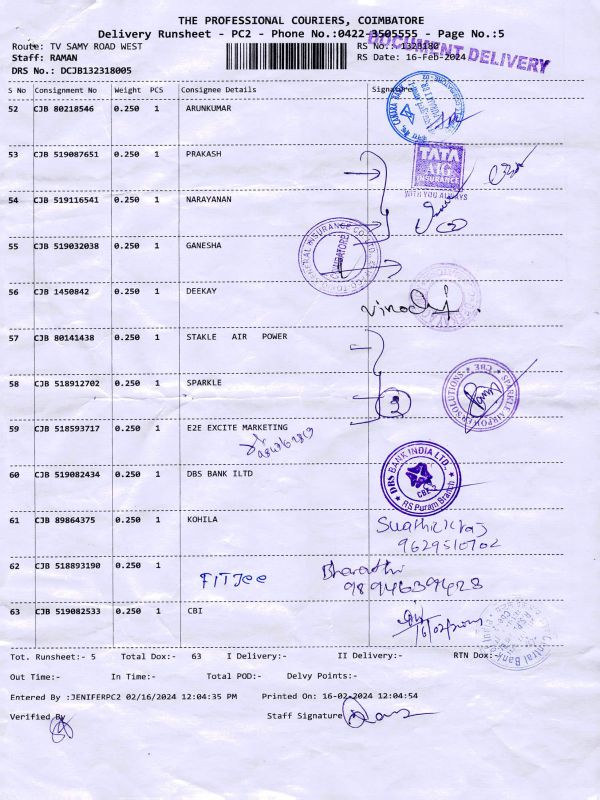 THE PROFESSIONAL COURIERS, COIMBATORE
Delivery Runsheet - PC2 - Phone No.:0422-3505555 - Page No.:5
Route: TV SAMY ROAD WEST RS No.: 1328180
Staff: RAMAN RS Date: 16-Feb-2024
DOCUMENT DELIVERY
DRS No.: DCJB132318005
S No Consignment No Weight PCS Consignee Details Signature
52 CJB 80218546 0.250 1 ARUNKUMAR
53 CJB 519087651 0.250 1 PRAKASH
TATA
AIG
INSURANCE
WITH YOU ALWAYS
54 CJB 519116541 0.250 1 NARAYANAN
55 CJB 519032038 0.250 1 GANESHA
56 CJB 1450842 0.250 1 DEEKAY
57 CJB 80141438 0.250 1 STAKLE AIR POWER
58 CJB 518912702 0.250 1 SPARKLE
2
SPARKLE AIRPOWER SOLUTIONS CBE
59 CJB 518593717 0.250 1 E2E EXCITE MARKETING
60 CJB 519082434 0.250 1 DBS BANK ILTD
DBS BANK INDIA LTD.
CBE-2
RS Puram Branch
61 CJB 89864375 0.250 1 KOHILA
9629510702
62 CJB 518893190 0.250 1
FITJee
Bharathi
9894639428
63 CJB 519082533 0.250 1 CBI
Tot. Runsheet:- 5 Total Dox:- 63 I Delivery:- II Delivery:- RTN Dox:-
Out Time:- In Time:- Total POD:- Delvy Points:-
Entered By :JENIFERPC2 02/16/2024 12:04:35 PM Printed On: 16-02-2024 12:04:54
Verified By Staff Signature